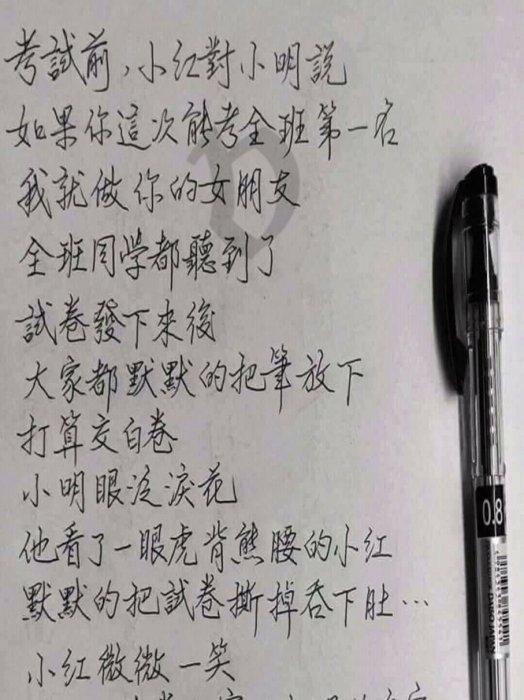 考試前，小红對小明説
如果你這次能考全班第一名
我就做你的女朋友
全班同学都聽到了
試卷發下來後
大家都默默的把筆放下
打算交白卷
小明眼泛淚花
他看了一眼虎背熊腰的小红
默默的把試卷撕掉吞下肚…
小红微微一笑
0.8